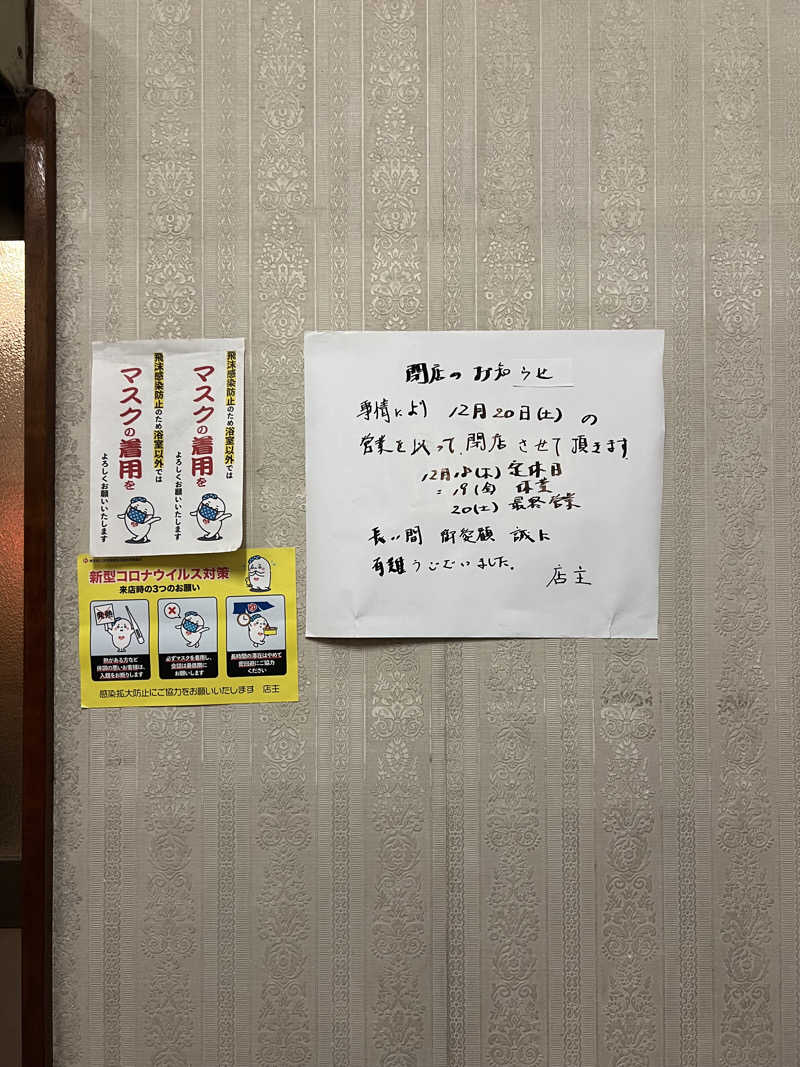 閉店のお知らせ
事情により 12月20日(土)の
営業を以って、閉店させて頂きます
12月18(木) 定休日
〃 19(金) 休業
20(土) 最終営業
長い間 御愛顧 誠に
有難うございました。
店主
飛沫感染防止のため浴室以外では
マスクの着用を
よろしくお願いいたします
飛沫感染防止のため浴室以外では
マスクの着用を
よろしくお願いいたします
新型コロナウイルス対策
来店時の3つのお願い
発熱
熱がある方など
体調の悪いお客様は、
入館をお断りします
必ずマスクを着用し、
会話は最低限に
お願いします
長時間の滞在はやめて
密回避にご協力
ください
感染拡大防止にご協力をお願いいたします 店主